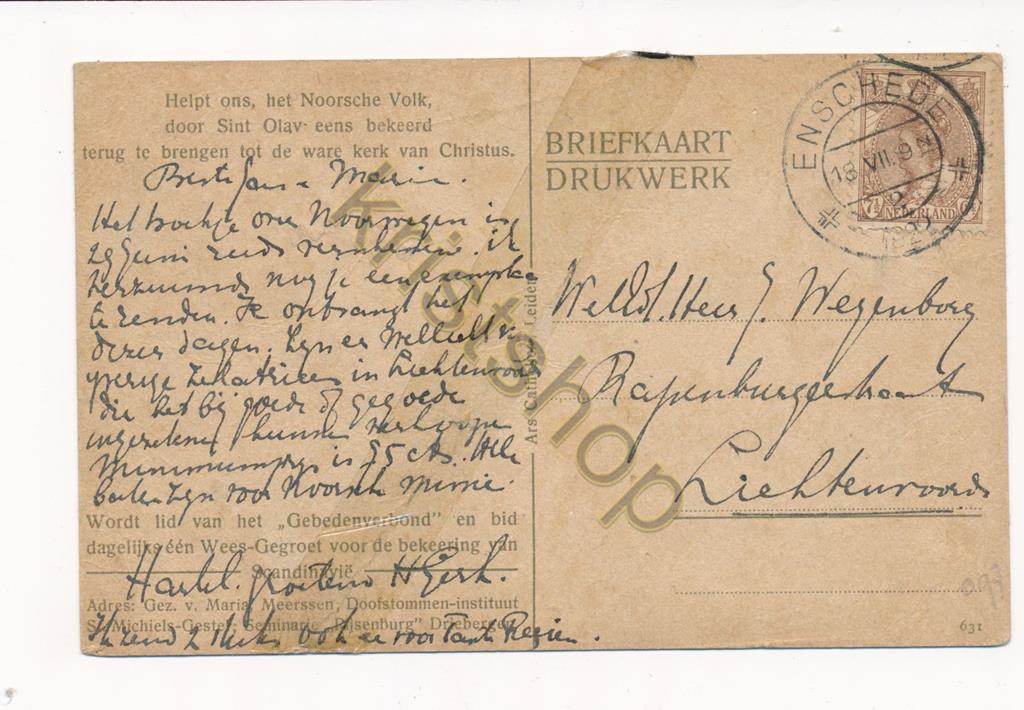 Helpt ons, het Noorsche Volk,
door Sint Olav eens bekeerd
terug te brengen tot de ware kerk van Christus.
Beste Jan & Marie.
Het boekje over Noorwegen is
29 Juni reeds verschenen. Ik
verzuimde nog je een exemplaar
te zenden. Je ontvangt het
dezer dagen. Zijn er wellicht
ijverige Zelatrices in Lichtenvoorde
die het bij goede of gegoede
ingezetenen kunnen verkoopen
Minimumprijs is 75 cts. Alle
baten zijn voor Noorsche missie.
Wordt lid van het „Gebedenverbond" en bid
dagelijks één Wees-Gegroet voor de bekeering van
Scandinavië
Hartel. groeten
Adres: Gez. v. Maria, Meerssen, Doofstommen-instituut
St. Michiels-Gestel; Seminarie "Rijsenburg" Driebergen
Ik zend 2 stuks ook er voor Tante
Ars Catholica Leiden
BRIEFKAART
DRUKWERK
ENSCHEDE
18 VII. 9 N
2
7½ NEDERLAND Ct
WelEd. Heer J. Wegenborg
Rapenburgerstraat
Lichtenvoorde
631
kristshop